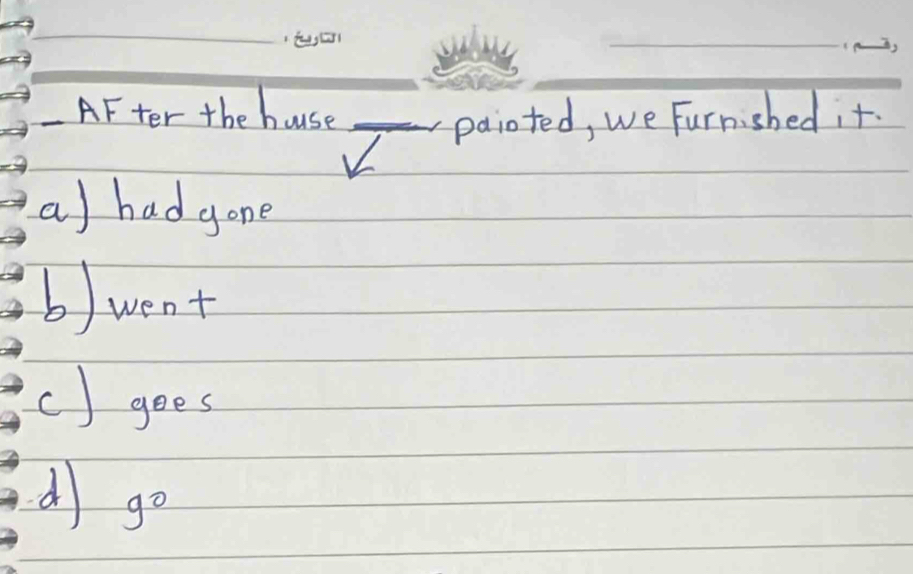 التاريخ : رقم :
- AFter the house ___ painted, we Furnished it.
a) had gone
b) went
c) goes
d) go